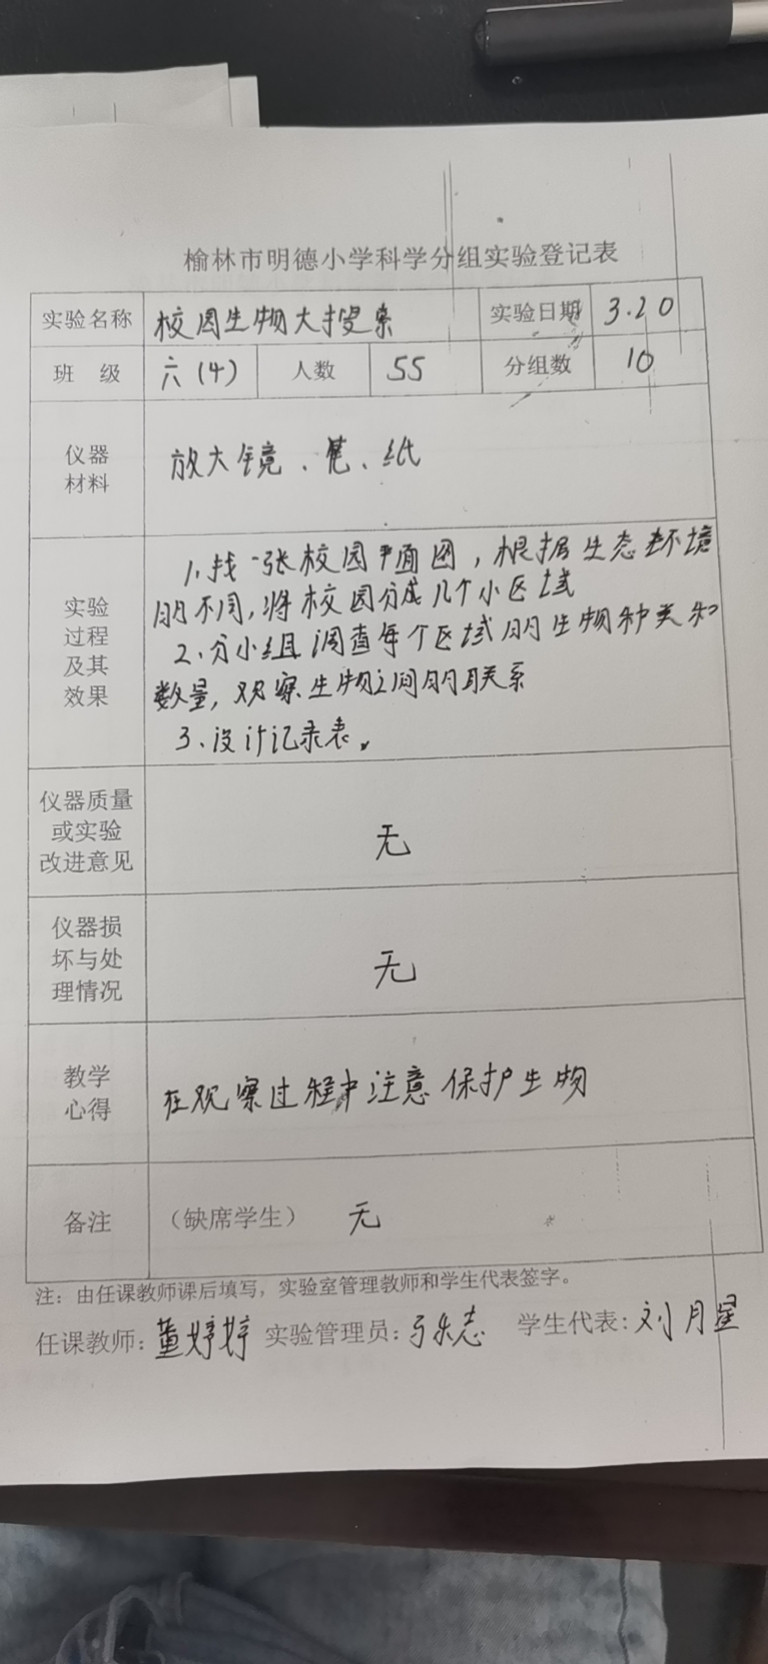 榆林市明德小学科学分组实验登记表
实验名称 校园生物大搜索 实验日期 3.20
班 级 六(4) 人数 55 分组数 10
仪器
材料
放大镜、笔、纸
实验
过程
及其
效果
1.找一张校园平面图,根据生态环境
的不同,将校园分成几个小区域
2.分小组调查每个区域的生物种类和
数量,观察生物之间的联系
3.设计记录表。
仪器质量
或实验
改进意见
无
仪器损
坏与处
理情况
无
教学
心得
在观察过程中注意保护生物
备注 (缺席学生) 无
注:由任课教师课后填写,实验室管理教师和学生代表签字。
任课教师:董婷婷 实验管理员: 学生代表:刘月星